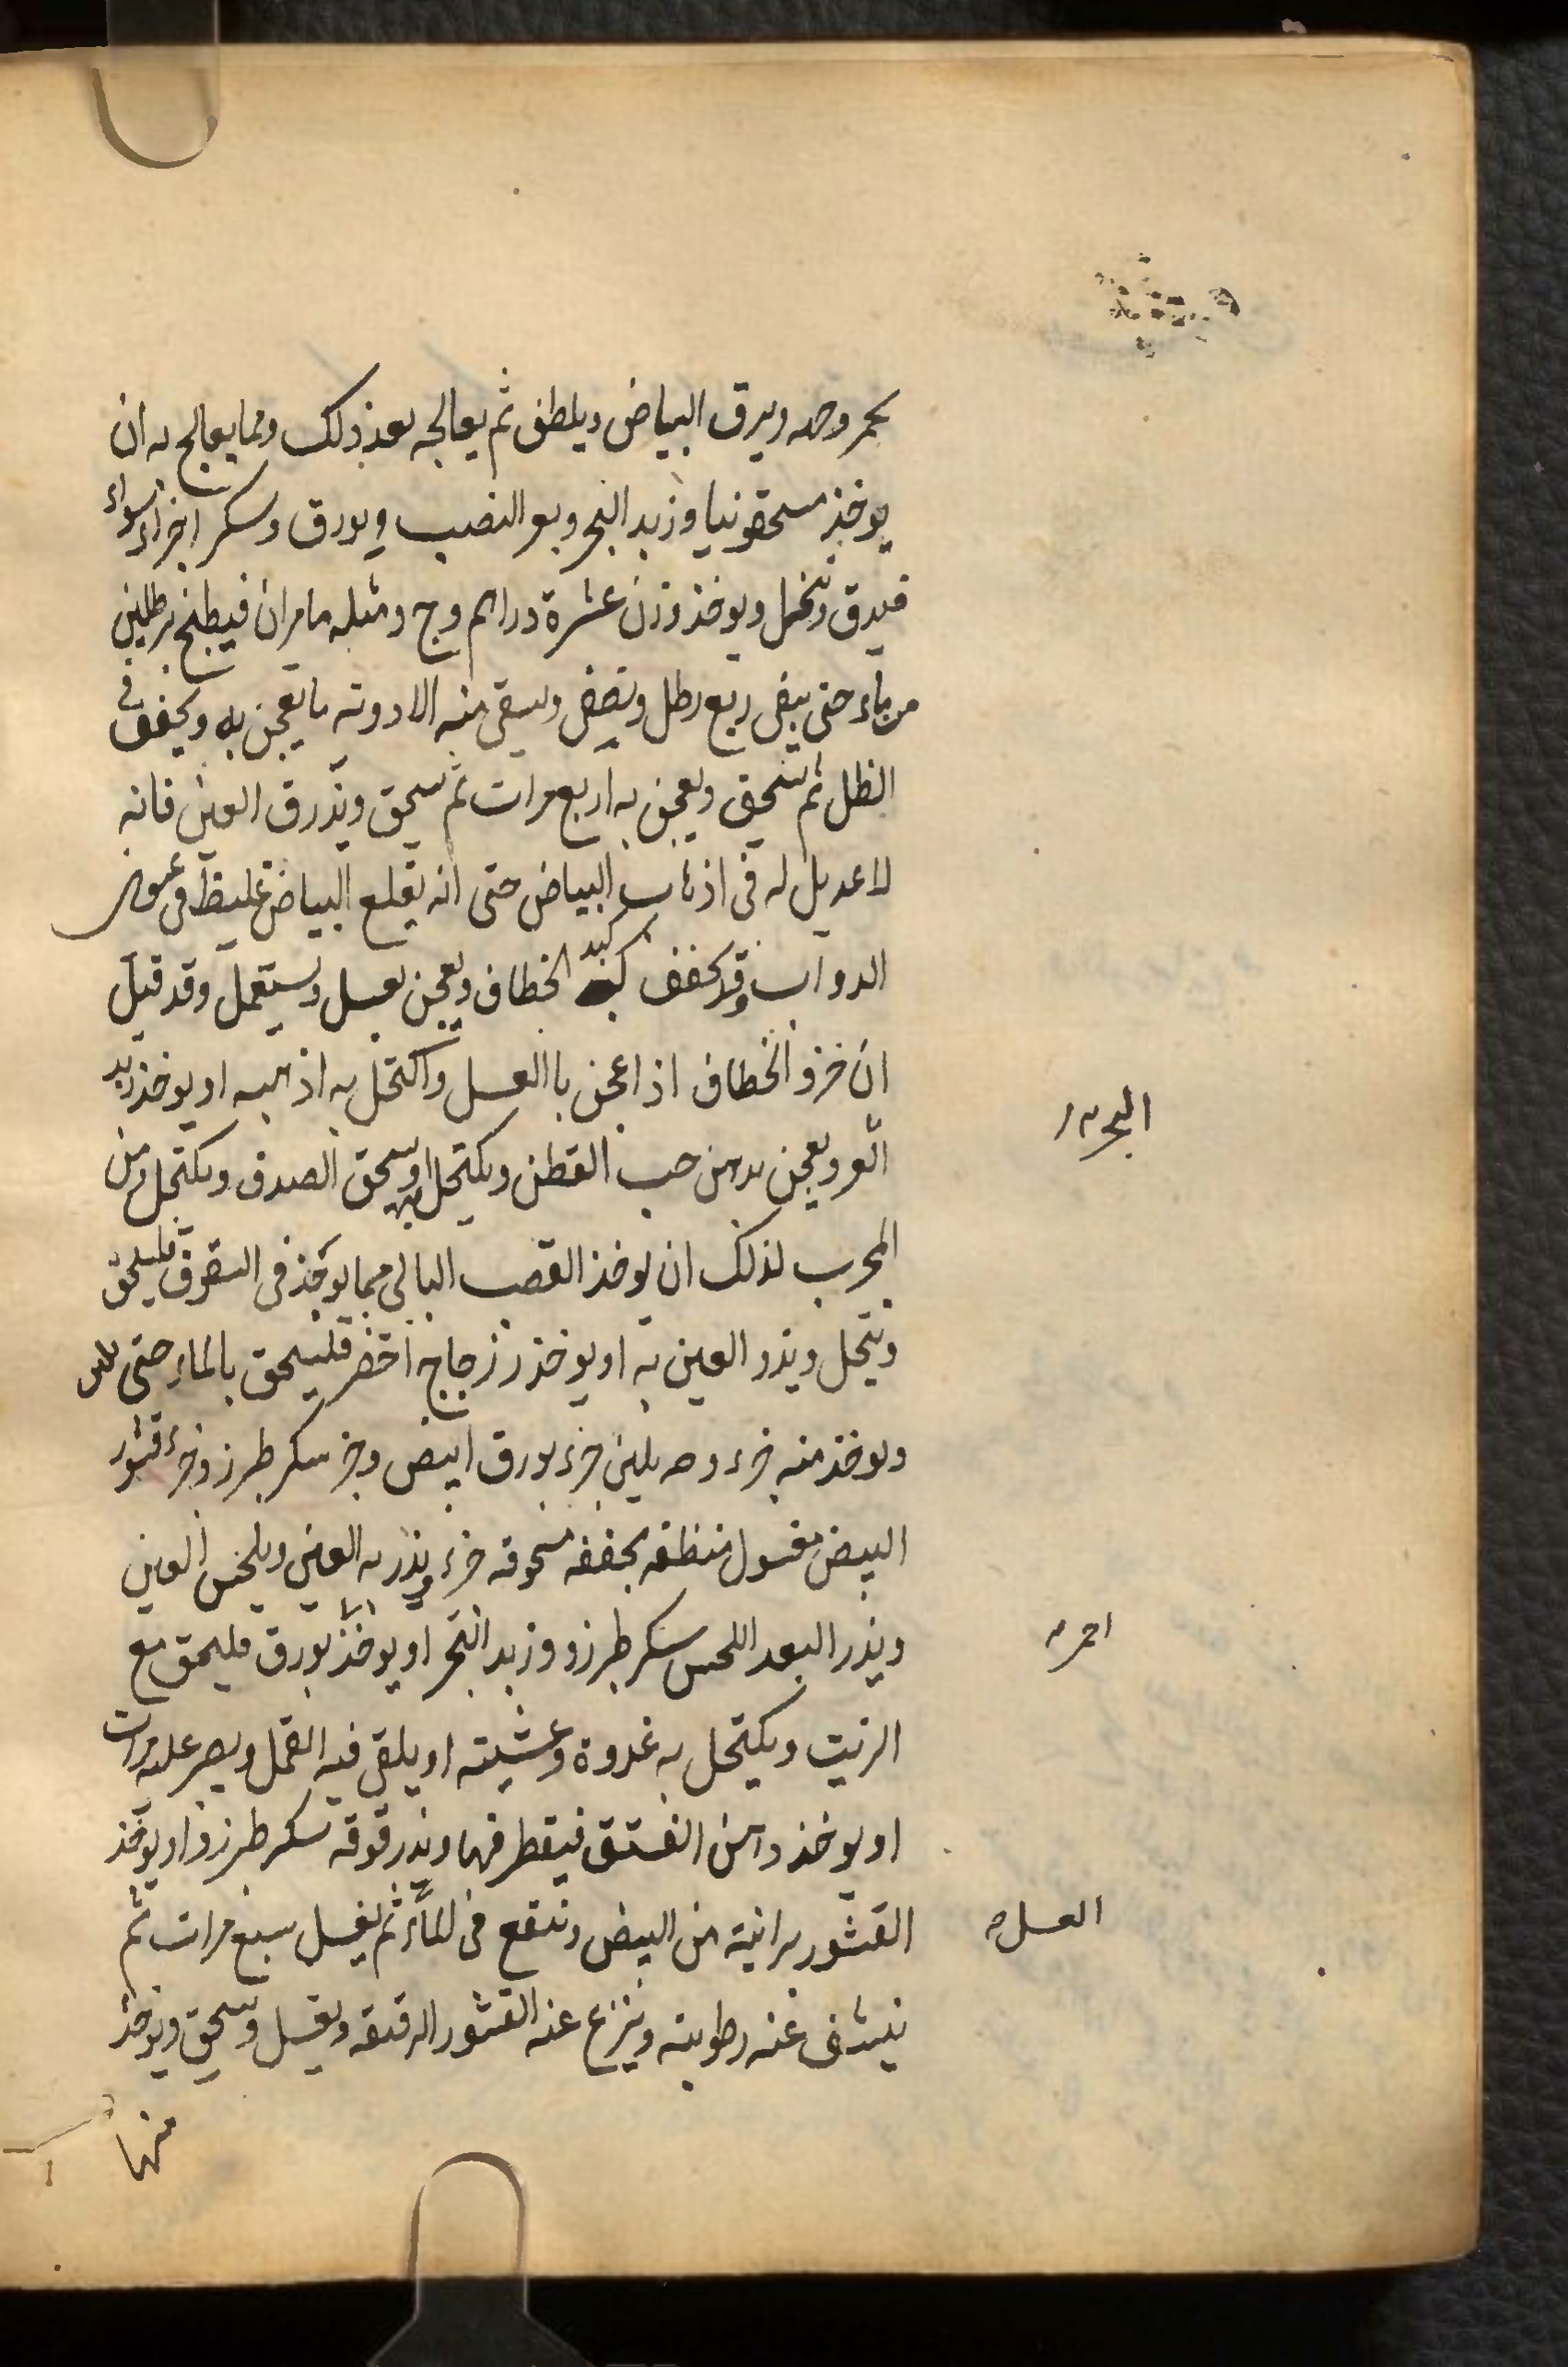 يحمر وجهه ويرق البياض ويلطف ثم يعالجه بعد ذلك ومما يعالج به ان
يوخذ مسحقونيا وزبد البحر وبعر الضب وبورق وسكر اجزاء سواء
فيدق وينخل ويوخذ وزن عشرة دراهم وج ومثله ماميران فيطبخ برطلين
من ماء حتى يبقى ربع رطل ويصفى ويسقى منه الادوية ما يعجن به ويجفف فى
الظل ثم يسحق ويعجن به اربع مرات ثم يسحق ويذر ق العين فانه
لا عديل له فى اذهاب البياض حتى انه يقلع البياض غليظ فى عيون
الدواب وقد يجفف كبد الخطاف ويعجن بعسل ويستعمل وقد قيل
ان خرو الخطاف اذا عجن باالعسل واكتحل به اذهبه او يوخذ زبد
البحر ويعجن بدهن حب القطن ويكتحل به او يسحق الصدف ويكتحل ومن
المجرب لذلك ان يوخذ القصب البالى مما يوخذ فى السقوف فليسحق
وينخل ويذر العين به او يوخذ زجاج اخضر فليسحق بالماء حتى
ويوخذ منه جزء وحد بلين جزء بورق ابيض وجز سكر طبرزد وجزء قشور
البيض مغسول منظفه مجففه مسحوقه جزء ويذر به العين ويلحس العين
ويذر البعد اللحس سكر طبرزد وزبد البحر او يوخذ بورق فليسحق مع
الزيت ويكتحل به غدوة وعشيته او يلقى فيه القمل ويصبر عليه مرات
او يوخذ دهن الفستق فيقطر فيها ويذر فوقه سكر طبرزد او يوخذ
القشور برانية من البيض وتنقع فى الماء ثم يغسل سبع مرات ثم
ينشف عنه رطوبته وينزع عنه القشور الرقيقه ويغسل ويسحق ويوخذ
منها
البحر
احمر
العسل